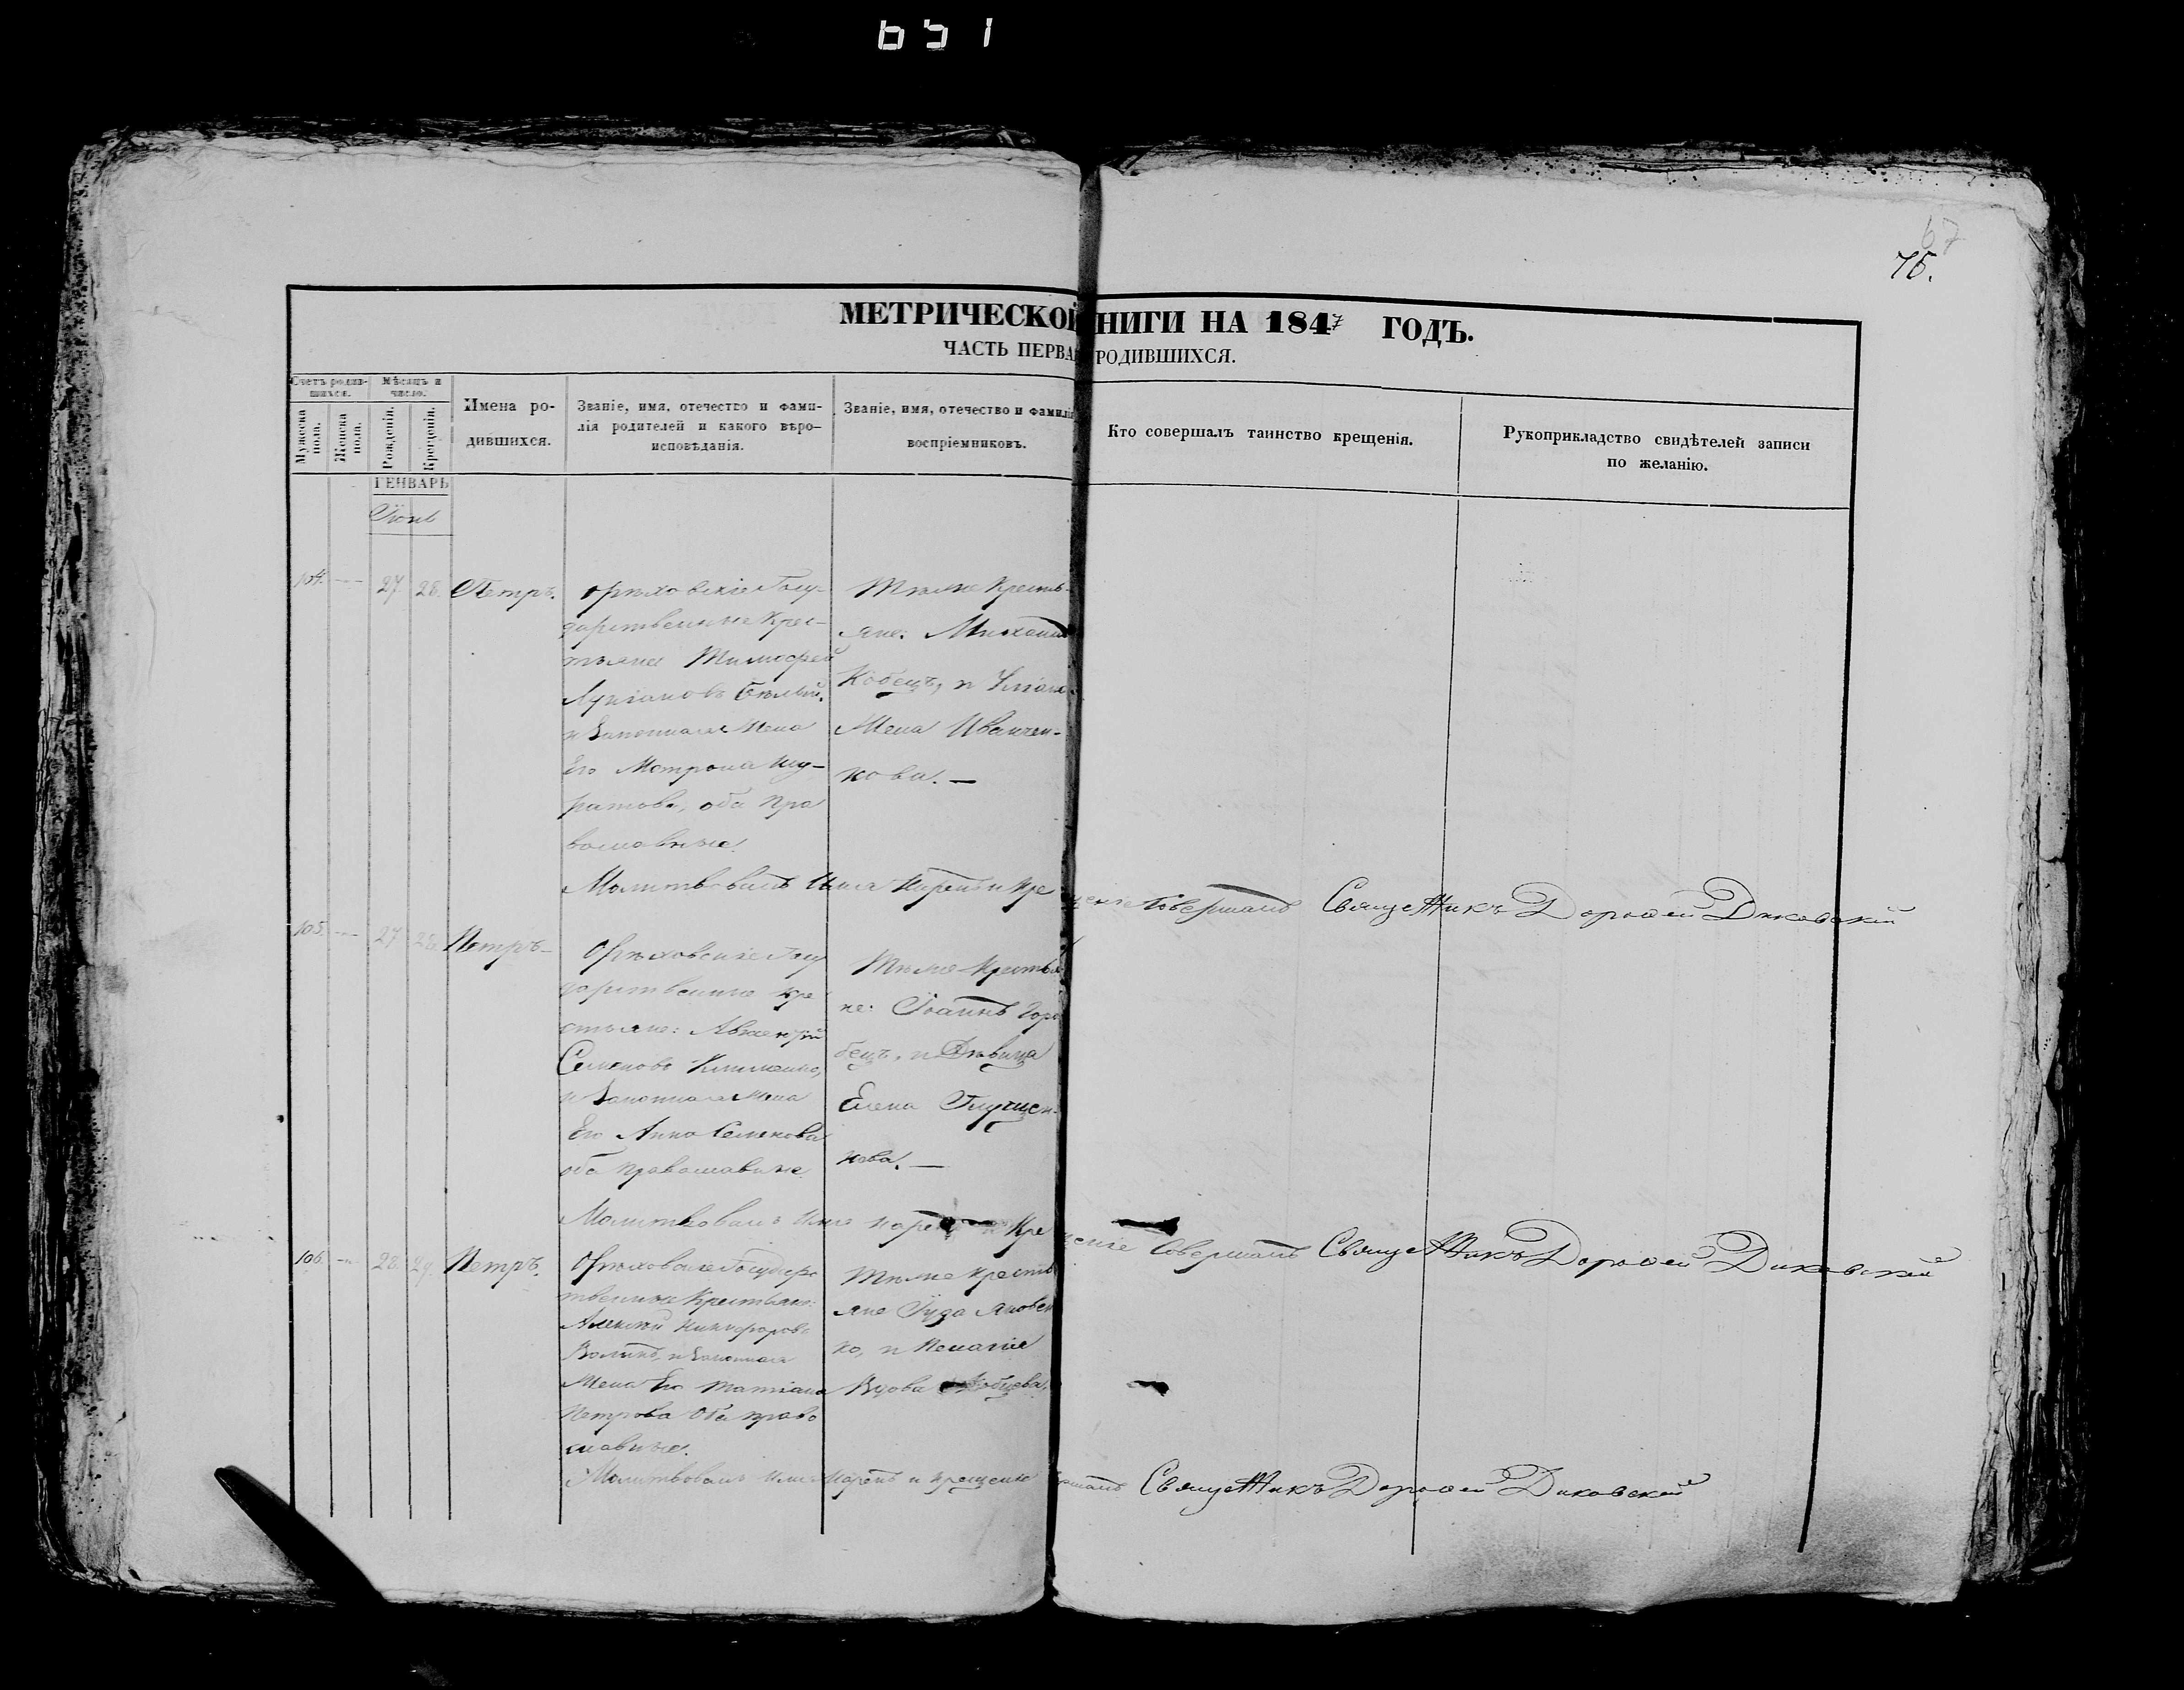 651
67
75.
МЕТРИЧЕСКОЙ НИГИ НА 1847 ГОДЪ.
ЧАСТЬ ПЕРВАЯ РОДИВШИХСЯ.
Счетъ родившихся.
Мужеска пола.
Женска пола.
Мѣсяцъ и число.
Рожденія.
Крещенія.
Имена родившихся.
Званіе, имя, отечество и фами-
лія родителей и какого вѣро-
исповѣданія.
Званіе, имя, отечество и фамилія
воспріемниковъ.
Кто совершалъ таинство крещенія.
Рукоприкладство свидѣтелей записи
по желанію.
ГЕНВАРЬ
Іюнь
104. — 27. 28. Петръ.
Орѣховскіе Госу-
дарственные Крес-
тьяне Тимофей
Лукіановъ Бѣлый,
и Законная Жена
Его Матрона
оба Пра
вославные.
Тѣже Кресть-
яне: Михаилъ
Кобецъ, и
Жена Иванчен-
кова. —
Молитвовалъ Имя Нарекъ и Кре
щеніе Совершалъ Священникъ Дорофей Диковскій
105. — 27 28. Петръ
Орѣховскіе Госу
дарственные Кре
стьяне: Авксентій
Семеновъ Клименко,
и Законная Жена
Его Анна Семенова
оба Православные
Тѣже Крестья
не: Іоаннъ Горо
бецъ, и Дѣвица
Елена Глущен-
кова. —
Молитвовалъ Имя Нарекъ и Кре
щеніе Совершалъ Священникъ Дорофей Диковскій
106. — 28. 29. Петръ.
Орѣховскіе Государс
твенные Крестьяне:
Алексѣй Никифоровъ
и Законная
Жена Его Татіана
Петрова Оба право
славные.
Тѣже Кресть
яне Іуда Яковен
ко, и Пелагія
Вдова
Молитвовалъ Имя Нарекъ и Крещеніе
Священникъ Дорофей Диковскій